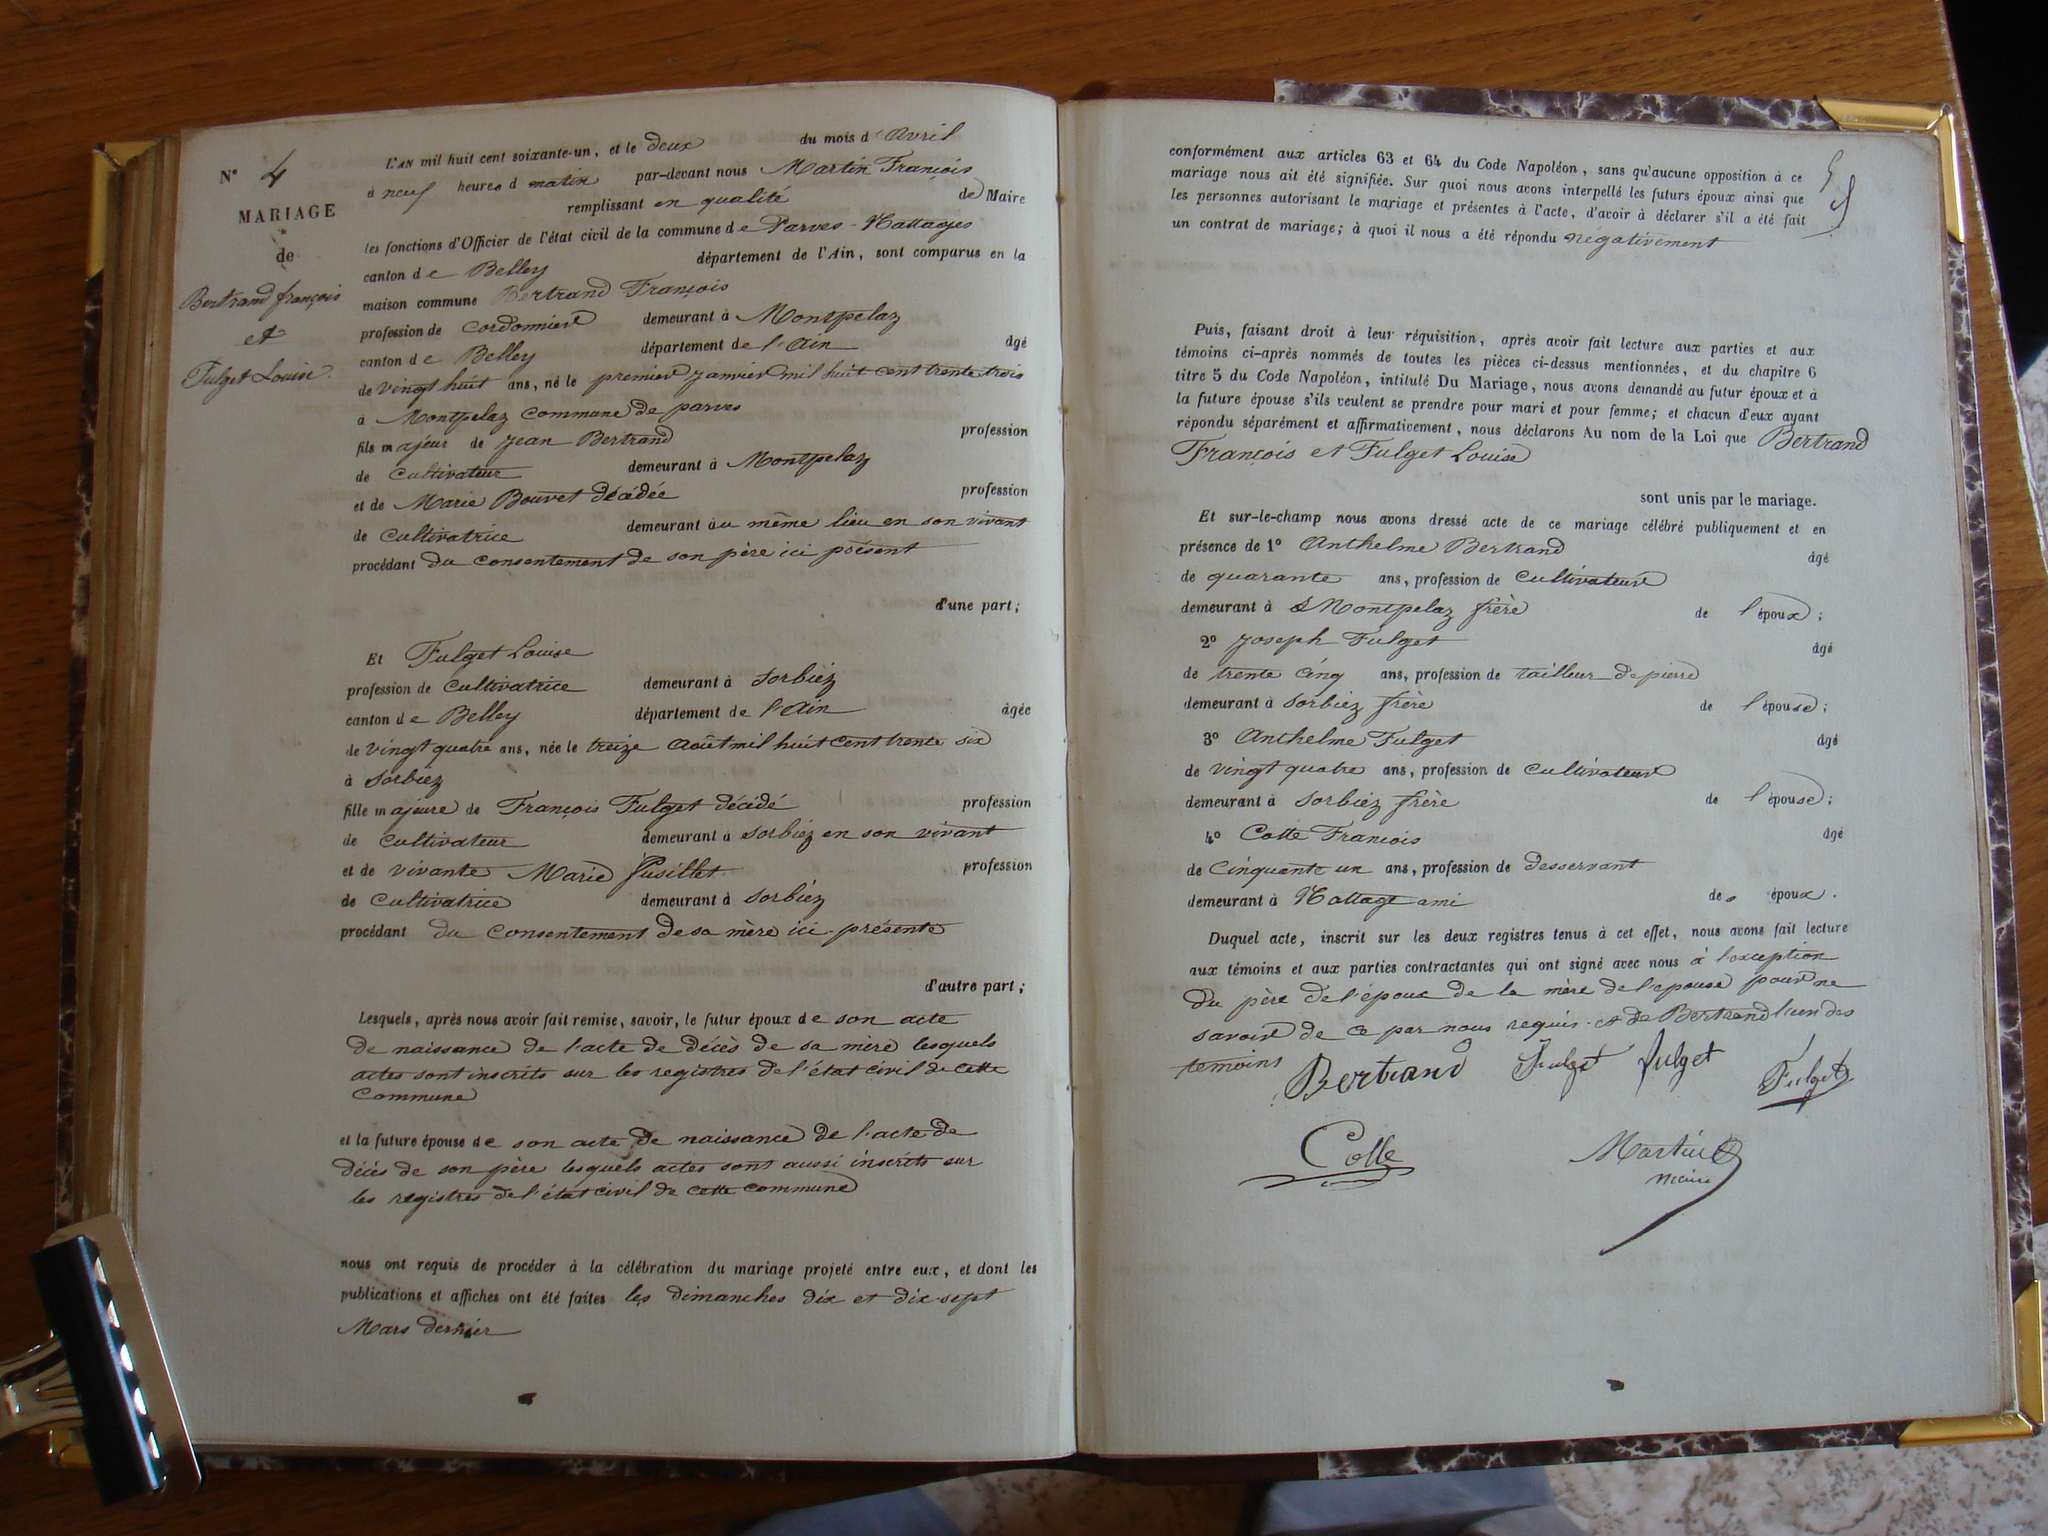 N° 4
MARIAGE
de
Bertrand françois
et
Fulget Louise.
L'AN mil huit cent soixante-un, et le deux du mois d'Avril
à neuf heures d matin par-devant nous Martin François
remplissant en qualité de Maire
les fonctions d'Officier de l'état civil de la commune de Parves-Nattages
canton de Belley département de l'Ain, sont comparus en la
maison commune Bertrand François
profession de cordonnier demeurant à Montpelaz
canton de Belley département de l'Ain âgé
de vingt huit ans, né le premier Janvier mil huit cent trente trois
à Montpelaz commune de parves
fils majeur de Jean Bertrand profession
de Cultivateur demeurant à Montpelaz
et de Marie Bouvet décédée profession
de Cultivatrice demeurant au même lieu en son vivant
procédant du consentement de son père ici présent
d'une part;
Et Fulget Louise
profession de cultivatrice demeurant à Sorbiez
canton de Belley département de l'Ain âgée
de vingt quatre ans, née le treize Août mil huit cent trente six
à Sorbiez
fille majeure de François Fulget décédé profession
de Cultivateur demeurant à Sorbiez en son vivant
et de vivante Marie Pusillet profession
de Cultivatrice demeurant à Sorbiez
procédant du consentement de sa mère ici présente
d'autre part;
Lesquels, après nous avoir fait remise, savoir, le futur époux de son acte
de naissance de l'acte de décès de sa mère lesquels
actes sont inscrits sur les registres de l'état civil de cette
Commune
et la future épouse de son acte de naissance de l'acte de
décès de son père lesquels actes sont aussi inscrits sur
les registres de l'état civil de cette commune
nous ont requis de procéder à la célébration du mariage projeté entre eux, et dont les
publications et affiches ont été faites les dimanches dix et dix sept
Mars dernier
conformément aux articles 63 et 64 du Code Napoléon, sans qu'aucune opposition à ce
mariage nous ait été signifiée. Sur quoi nous avons interpellé les futurs époux ainsi que
les personnes autorisant le mariage et présentes à l'acte, d'avoir à déclarer s'il a été fait
un contrat de mariage; à quoi il nous a été répondu négativement
Puis, faisant droit à leur réquisition, après avoir fait lecture aux parties et aux
témoins ci-après nommés de toutes les pièces ci-dessus mentionnées, et du chapitre 6
titre 5 du Code Napoléon, intitulé Du Mariage, nous avons demandé au futur époux et à
la future épouse s'ils veulent se prendre pour mari et pour femme; et chacun d'eux ayant
répondu séparément et affirmativement, nous déclarons Au nom de la Loi que Bertrand
François et Fulget Louise
sont unis par le mariage.
Et sur-le-champ nous avons dressé acte de ce mariage célébré publiquement et en
présence de 1° Anthelme Bertrand âgé
de quarante ans, profession de Cultivateur
demeurant à Montpelaz frère de l'époux;
2° Joseph Fulget âgé
de trente cinq ans, profession de tailleur de pierre
demeurant à Sorbiez frère de l'épouse;
3° Anthelme Fulget âgé
de vingt quatre ans, profession de Cultivateur
demeurant à Sorbiez frère de l'épouse;
4° Colle François âgé
de Cinquante un ans, profession de desservant
demeurant à Nattage ami des époux.
Duquel acte, inscrit sur les deux registres tenus à cet effet, nous avons fait lecture
aux témoins et aux parties contractantes qui ont signé avec nous à l'exception
du père de l'époux de la mère de l'épouse pour ne
savoir de ce par nous requis et de Bertrand l'un des
temoins
Bertrand Fulget fulget Fulget
Colle Martin
Maire